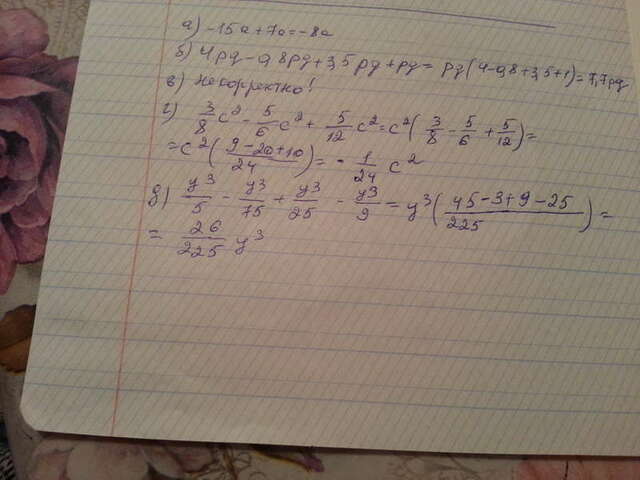 а) -15a+7a=-8a
б) 4pq-0,8pq+3,5pq+pq= pq(4-0,8+3,5+1)=7,7pq
в) Некорректно!
г) 3/8 c² - 5/6 c² + 5/12 c² = c²(3/8 - 5/6 + 5/12)=
= c²((9-20+10)/24) = - 1/24 c²
д) y³/5 - y³/75 + y³/25 - y³/9 = y³((45-3+9-25)/225) =
= 26/225 y³